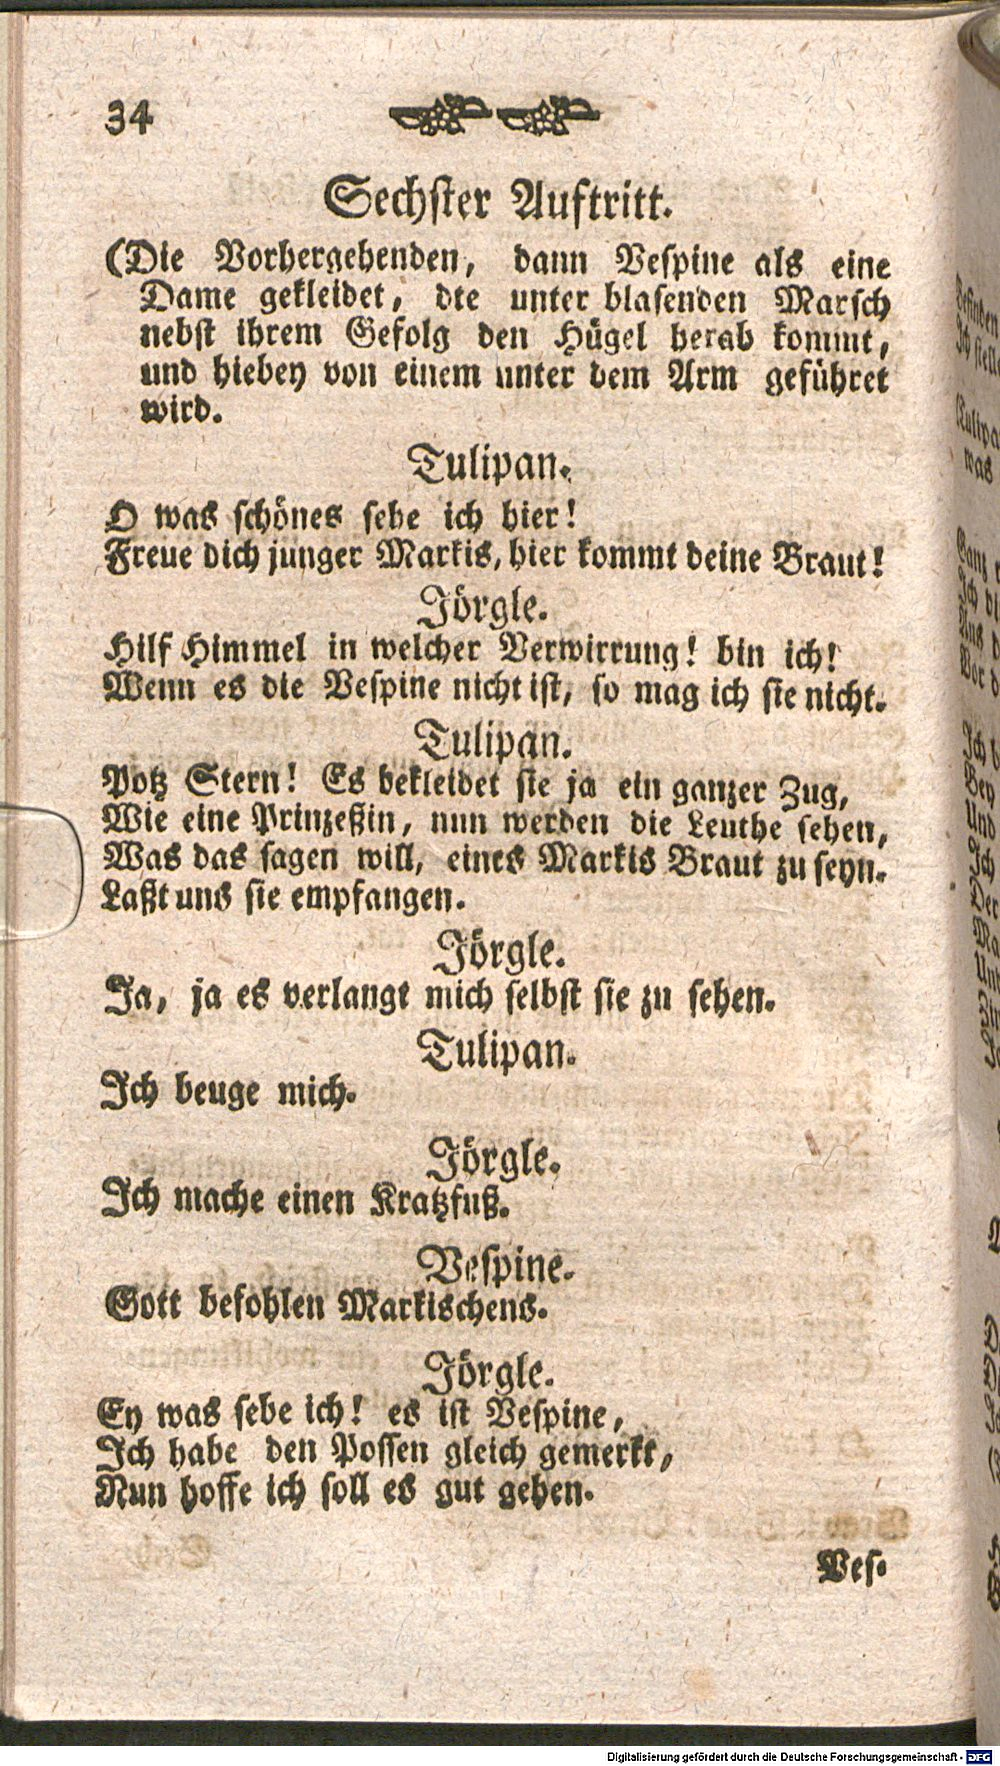 34
Sechster Auftritt.
(Die Vorhergehenden, dann Vespine als eine
Dame gekleidet, die unter blasenden Marsch
nebst ihrem Gefolg den Hügel herab kommt,
und hiebey von einem unter dem Arm geführet
wird.
Tulipan.
O was schönes sehe ich hier!
Freue dich junger Markis, hier kommt deine Braut!
Jörgle.
Hilf Himmel in welcher Verwirrung! bin ich!
Wenn es die Vespine nicht ist, so mag ich sie nicht.
Tulipan.
Potz Stern! Es bekleidet sie ja ein ganzer Zug,
Wie eine Prinzeßin, nun werden die Leuthe sehen,
Was das sagen will, eines Markis Braut zu seyn.
Laßt uns sie empfangen.
Jörgle.
Ja, ja es verlangt mich selbst sie zu sehen.
Tulipan.
Ich beuge mich.
Jörgle.
Ich mache einen Kratzfuß.
Vespine.
Gott befohlen Markischens.
Jörgle.
Ey was sehe ich! es ist Vespine,
Ich habe den Possen gleich gemerkt,
Nun hoffe ich soll es gut gehen.
Ves-
Digitalisierung gefördert durch die Deutsche Forschungsgemeinschaft - DFG